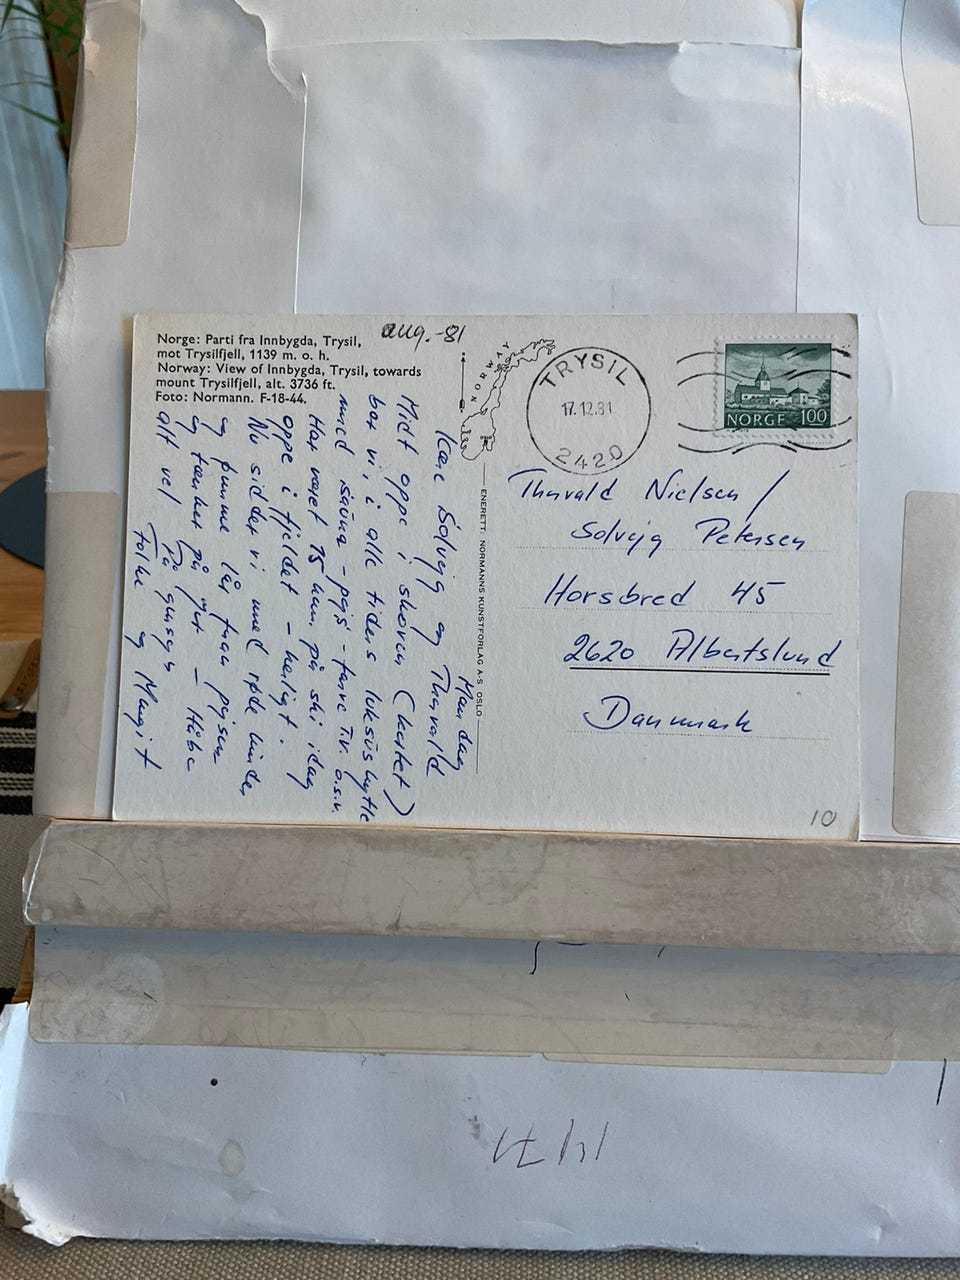 Norge: Parti fra Innbygda, Trysil,
mot Trysilfjell, 1139 m. o. h.
Norway: View of Innbygda, Trysil, towards
mount Trysilfjell, alt. 3736 ft.
Foto: Normann. F-18-44.
aug.-81
Mandag
Kære Solvejg og Thorvald
Midt oppe i skoven (kortet)
bor vi, i alle tiders luksushytte
med sauna - pejs - farve T.V. o.s.v.
Har været 15 km. på ski i dag
oppe i fjeldet - herligt.
Nu sidder vi med røde kinder
og varme lår foran pejsen
og tænker på jer - Håber
alt vel På gensyn
Folke og Margit
NORWAY
OSLO
ENERETT: NORMANNS KUNSTFORLAG A-S OSLO
TRYSIL
17.12.81
2420
NORGE 100
Thorvald Nielsen /
Solvejg Petersen
Horsbred 45
2620 Albertslund
Danmark
10